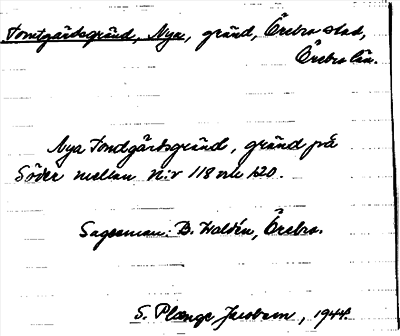 Tomtgårdsgränd, Nya, gränd, Örebro stad,
Örebro län.
Nya Tomtgårdsgränd, gränd på
Söder mellan N:r 118 och 120.
Sagesman: B. Waldén, Örebro.
S. Plænge Jacobson, 1944.